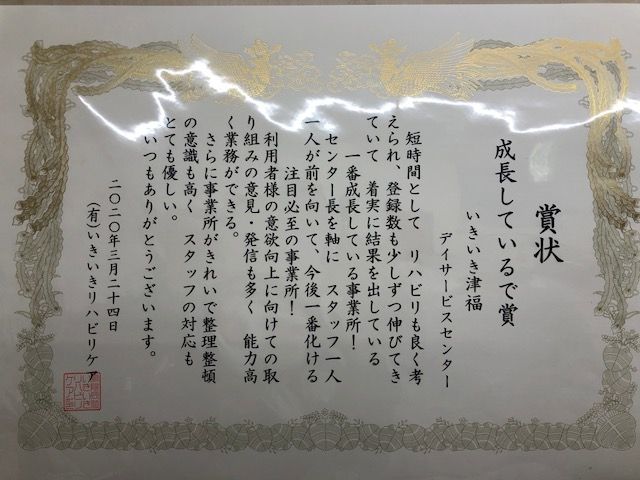 賞状
成長しているで賞
デイサービスセンター
いきいき津福
短時間として リハビリも良く考
えられ、登録数も少しずつ伸びてき
ていて 着実に結果を出している
一番成長している事業所！
センター長を軸に スタッフ一人
一人が前を向いて、今後一番化ける
注目必至の事業所！
利用者様の意欲向上に向けての取
り組みの意見・発信も多く 能力高
く業務ができる。
さらに事業所がきれいで整理整頓
の意識も高く スタッフの対応も
とても優しい。
いつもありがとうございます。
二〇二〇年三月二十四日
（有）いきいきリハビリケア